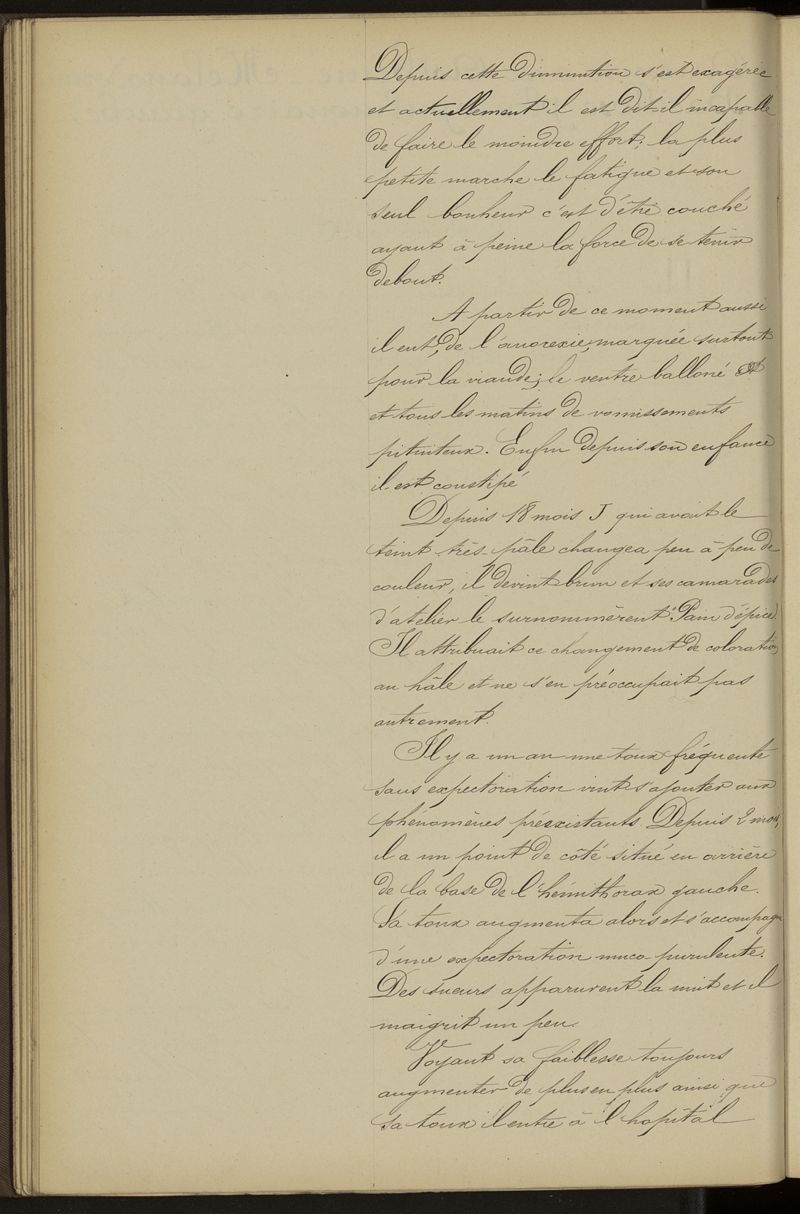 Depuis cette diminution s'est exagérée
et actuellement il est dit il incapable
de faire le moindre effort; la plus
petite marche le fatigue et son
seul bonheur c'est d'être couché
ayant à peine la force de se tenir
debout.
A partir de ce moment aussi
il eut, de l'anorexie, marquée surtout
pour la viande; le ventre balloné
et tous les matins de vomissements
pituiteux. Enfin depuis son enfance
il est constipé
Depuis 18 mois J qui avait le
teint très-pâle changea peu à peu de
couleur, il devint brun et ses camarades
d'atelier le surnommèrent "Pain d'épice"
Il attribuait ce changement de coloration
au hâle et ne s'en préoccupait pas
autrement.
Il y a un an une toux fréquente
sans expectoration vint s'ajouter aux
phénomènes préexistants. Depuis 2 mois,
il a un point de côté situé en arrière
de la base de l'hémithorax gauche.
Sa toux augmenta alors et s'accompagn
d'une expectoration muco purulente.
Des sueurs apparurent la nuit et il
maigrit un peu.
Voyant sa faiblesse toujours
augmenter de plus en plus ainsi que
sa toux il entre à l'hopital